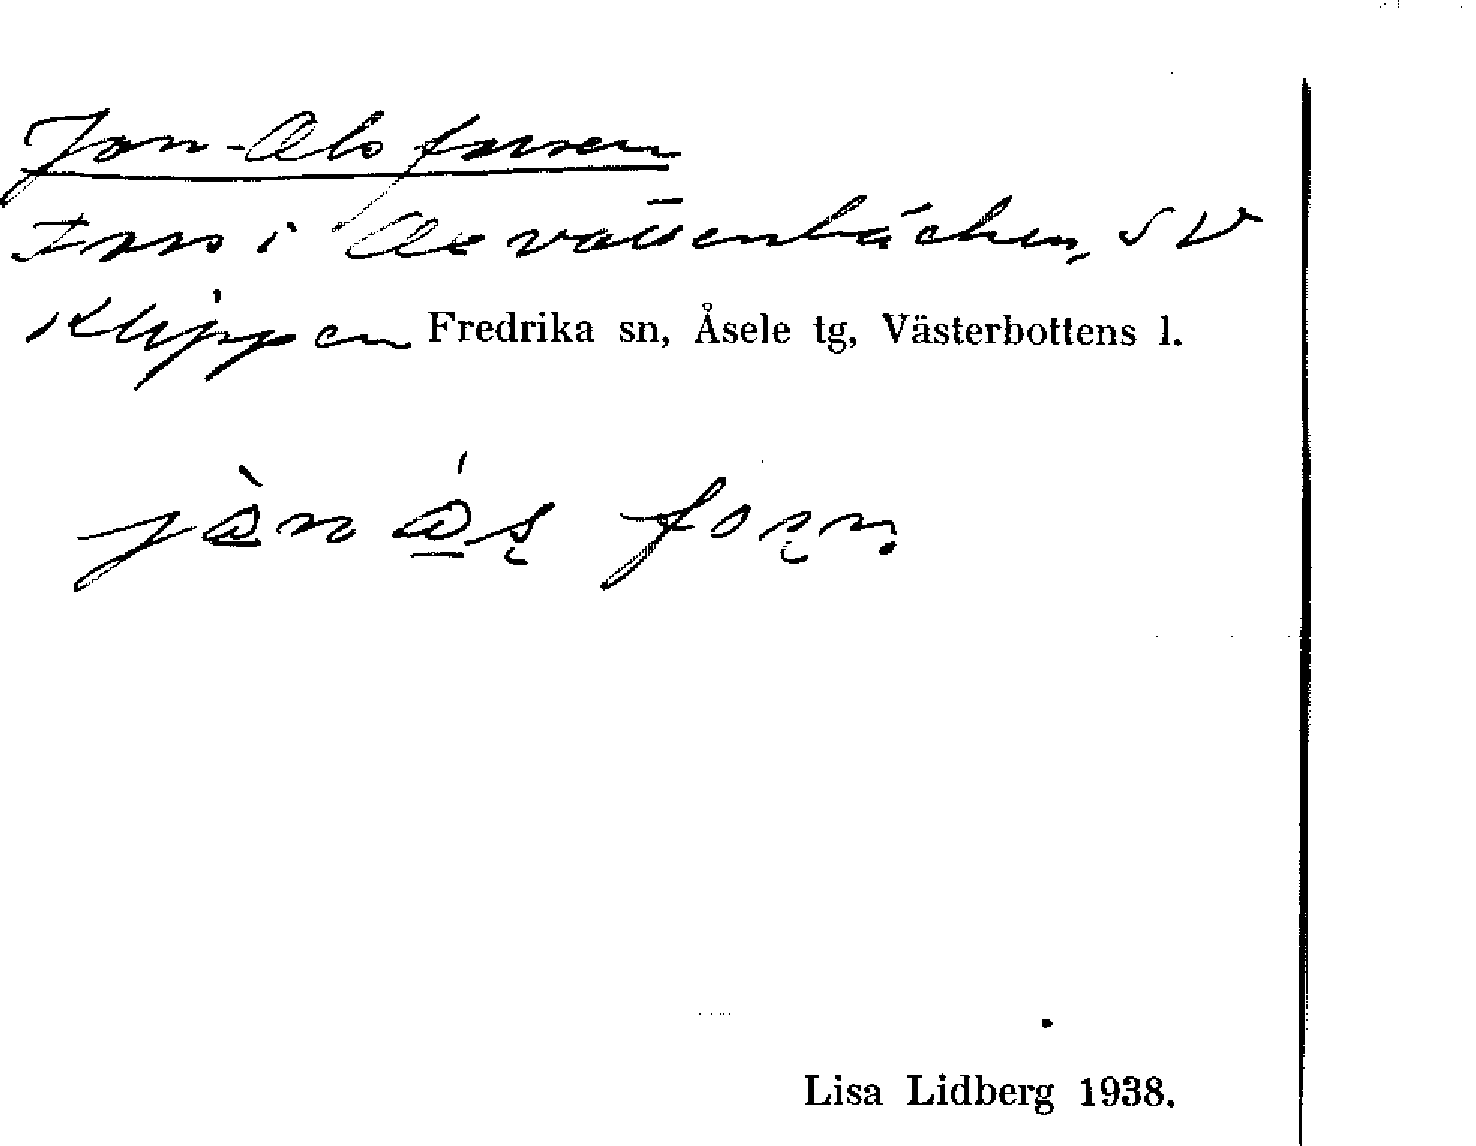 Jon-Olsforsen
Fors i Oxvattenbäcken, SV
Klippen Fredrika sn, Åsele tg, Västerbottens l.
Lisa Lidberg 1938.